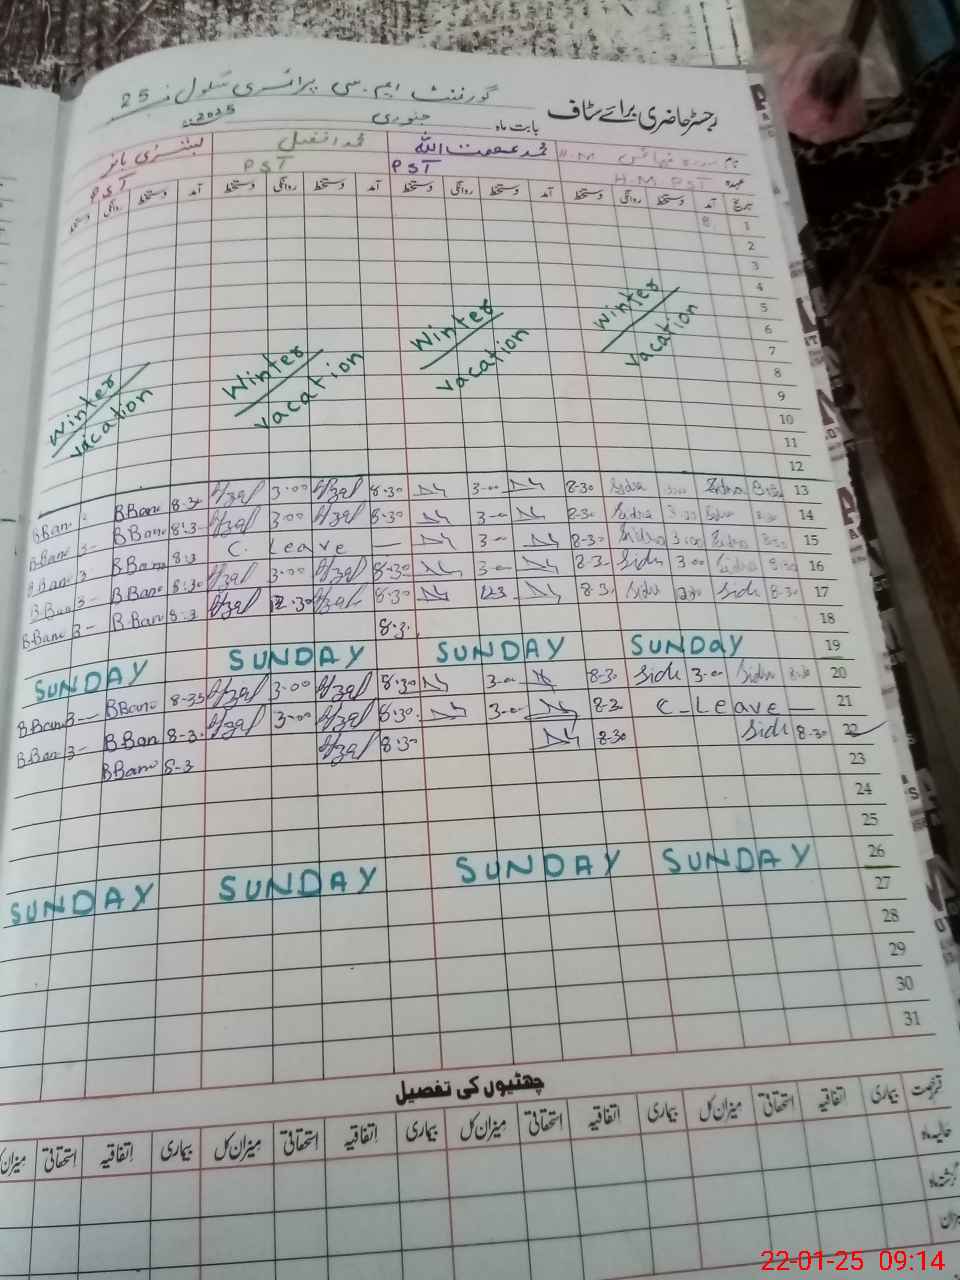 گورنمنٹ ایم.سی پرائمری سکول نمبر 25
رجسٹر حاضری برائے سٹاف
بابت ماہ جنوری 2025ء
نام سدرہ محمد عصمت اللہ محمد افضل بانو
عہدہ H.M PST PST PST PST
تاریخ آمد دستخط روانگی دستخط آمد دستخط روانگی دستخط آمد دستخط روانگی دستخط آمد دستخط روانگی دستخط
1 8
2
3
4
5
6
7
8
9
10
11
12
Winter Vacation
Winter Vacation
Winter Vacation
Winter Vacation
13 8-30 Sidra 3-00 Sidra 8-30 3-00 8-30 Afzal 3-00 Afzal 8-3 BBano BBano
14 8-30 Sidra 3-00 Sidra 8-30 3-00 8-30 Afzal 3-00 Afzal 8-3 BBano 3- BBano
15 8-30 Sidra 3-00 Sidra 8-30 3-00 — C. Leave 8-3 BBano 3- BBano
16 8-30 Sidra 3-00 Sidra 8-3 3-00 8-30 Afzal 3-00 Afzal 8-30 BBano 3- BBano
17 8-30 Sidra Sidra 8-3 8-30 Afzal 12-30 Afzal 8-3 BBano 3- BBano
18 8-3
19 SUNDAY SUNDAY SUNDAY SUNDAY
20 8-30 Sidra 3-00 Sidra 8-30 3-00 8-30 Afzal 3-00 Afzal 8-35 BBano 3- BBano
21 C-Leave — 8-3 3-00 8-30 Afzal 3-00 Afzal 8-3 BBano 3- BBano
22 8-30 Sidra 8-30 8-30 Afzal 8-3 BBano
23
24
25
26 SUNDAY SUNDAY SUNDAY SUNDAY
27
28
29
30
31
چھٹیوں کی تفصیل
قسم رخصت بیماری اتفاقیہ استحقاقی میزان کل بیماری اتفاقیہ استحقاقی میزان کل بیماری اتفاقیہ استحقاقی میزان کل بیماری اتفاقیہ استحقاقی میزان
حالیہ ماہ
گزشتہ ماہ
میزان
22-01-25 09:14